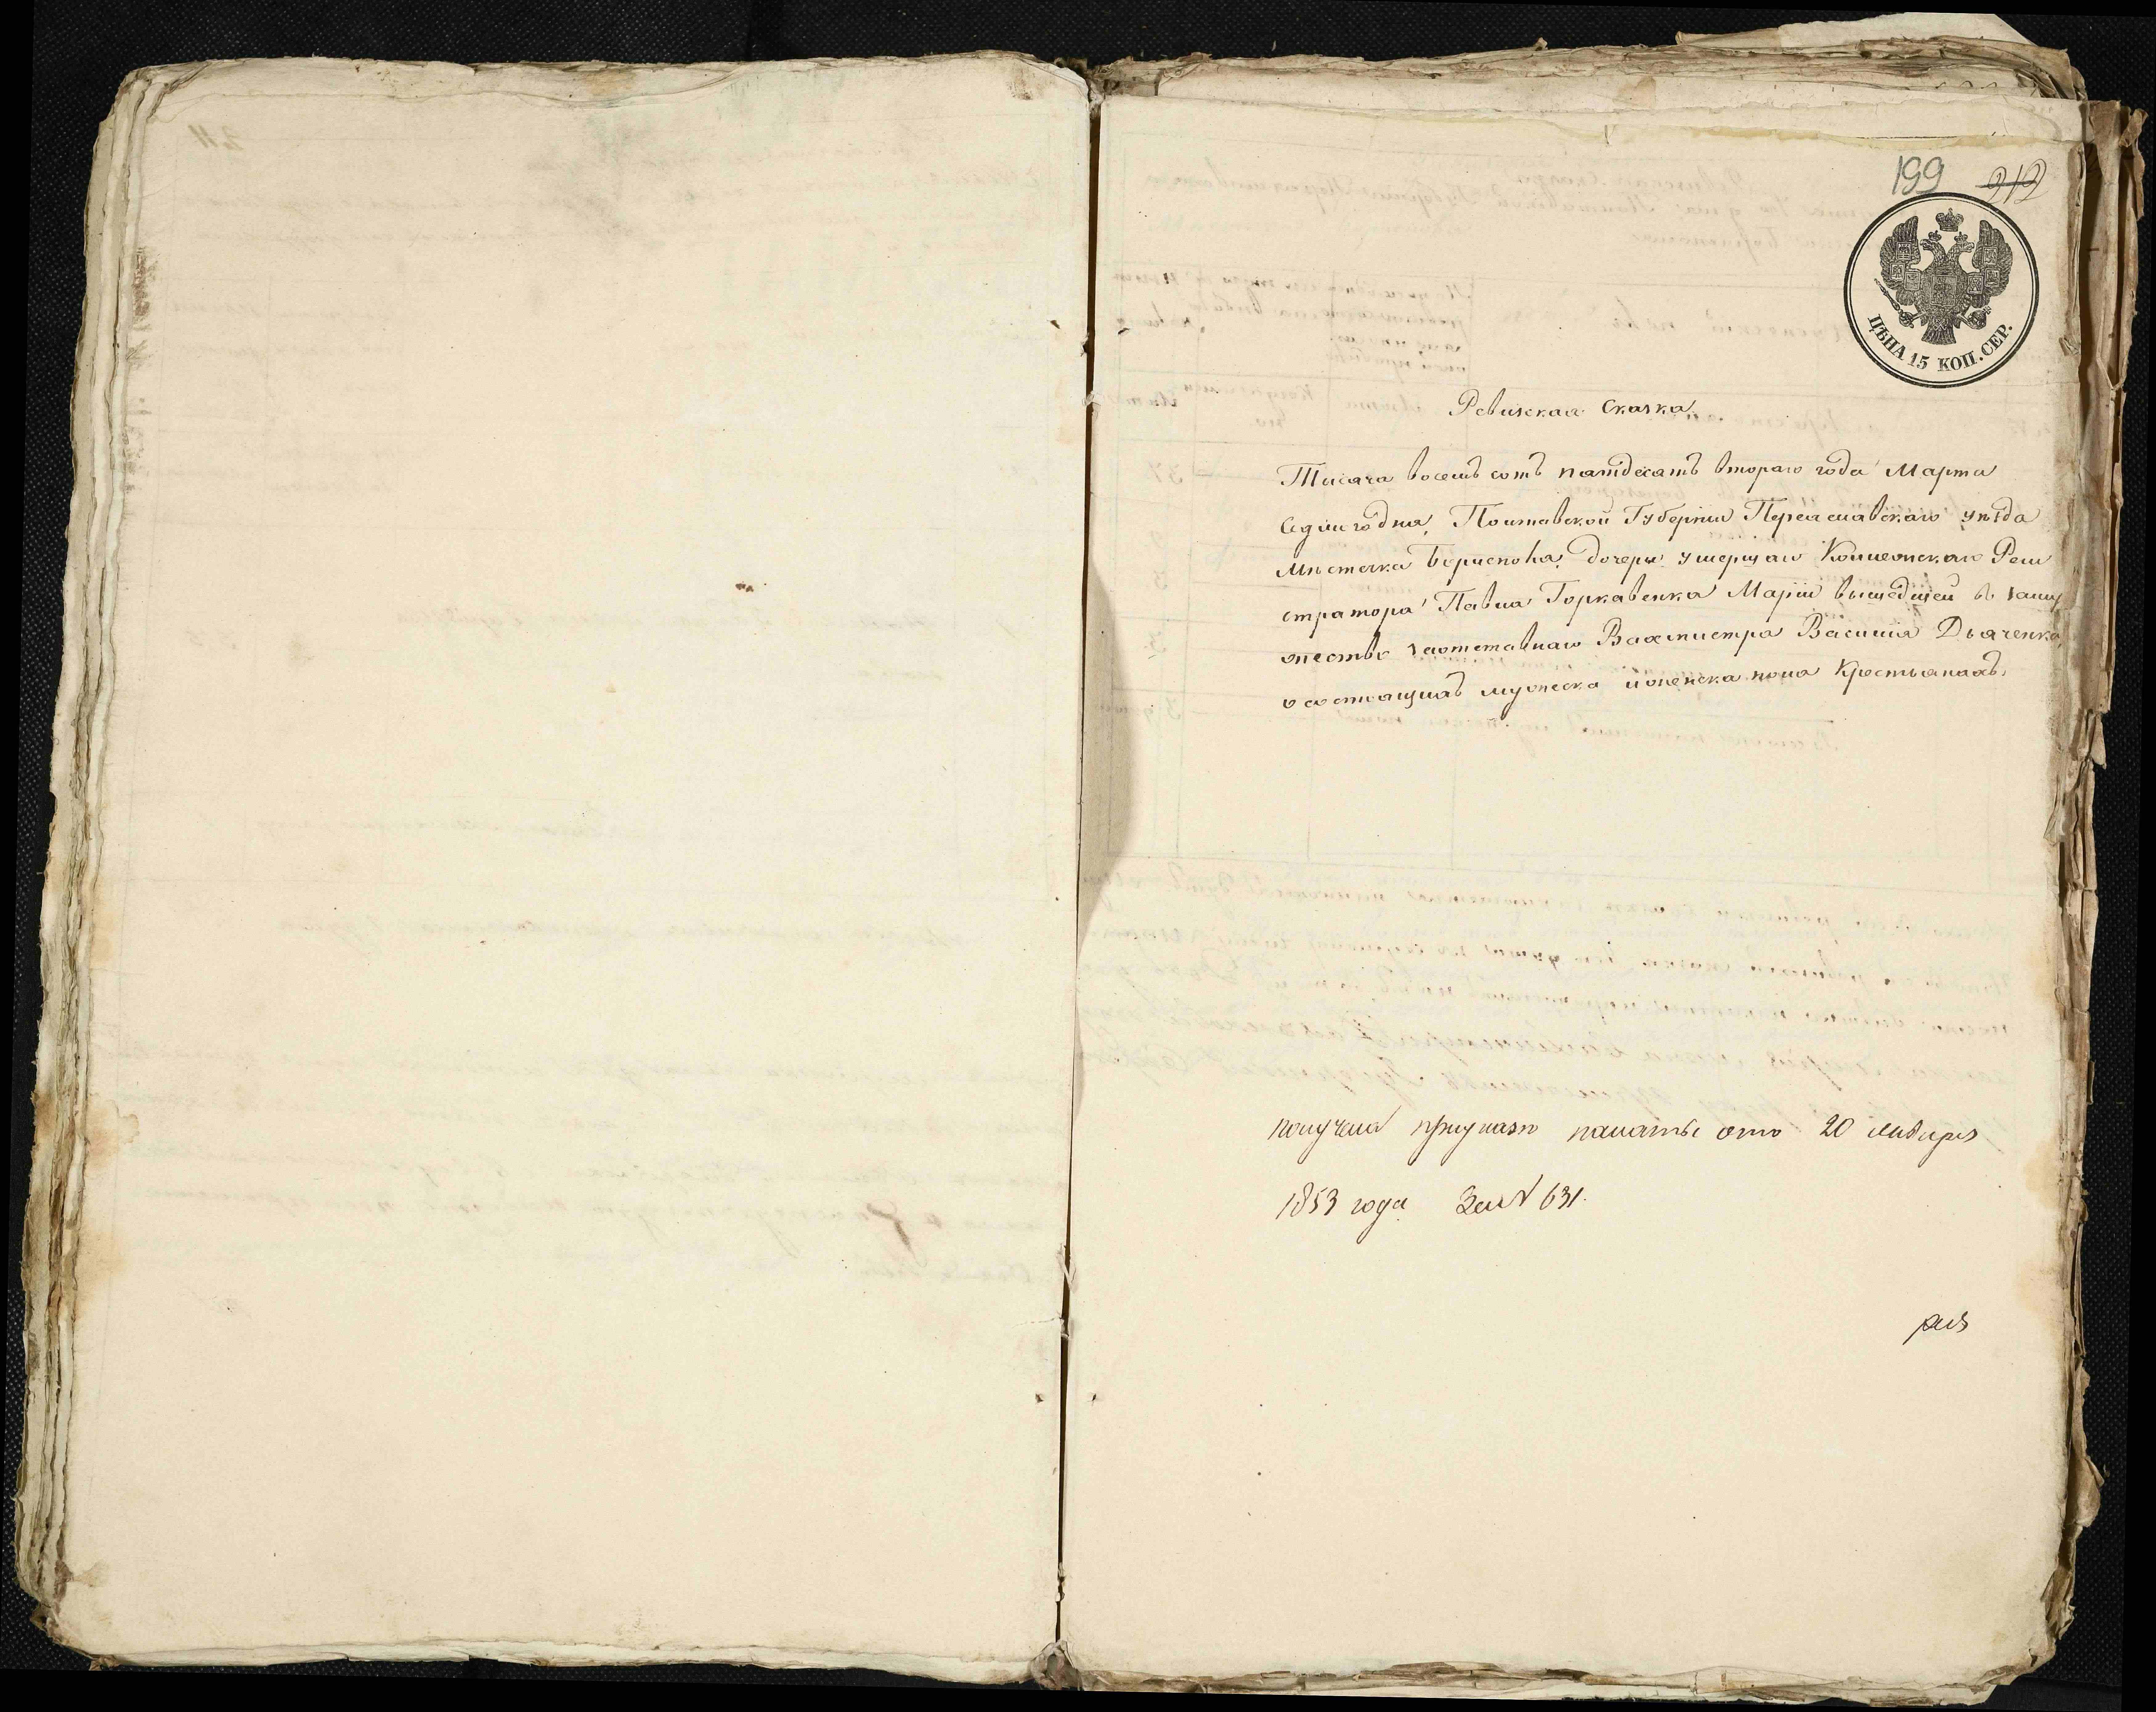 199 212
ЦѢНА 15 КОП. СЕР.
Ревизская Сказка
Тисяча восемъ сотъ пятдесятъ втораго года Марта
Седмого дня, Полтавской Губерніи Переяславскаго уѣзда
Мѣстечка Бориспоља, дочери умершаго Коллежскаго Реги
стратора Павла Горкавенка Маріи вышедшей въ заму
жество за отставнаго Вахмистра Василія Дьяченка,
о состоящихъ мужеска и женска пола Крестьянахъ.
получена при указе палаты отъ 20 Января
1853 года За N 631.